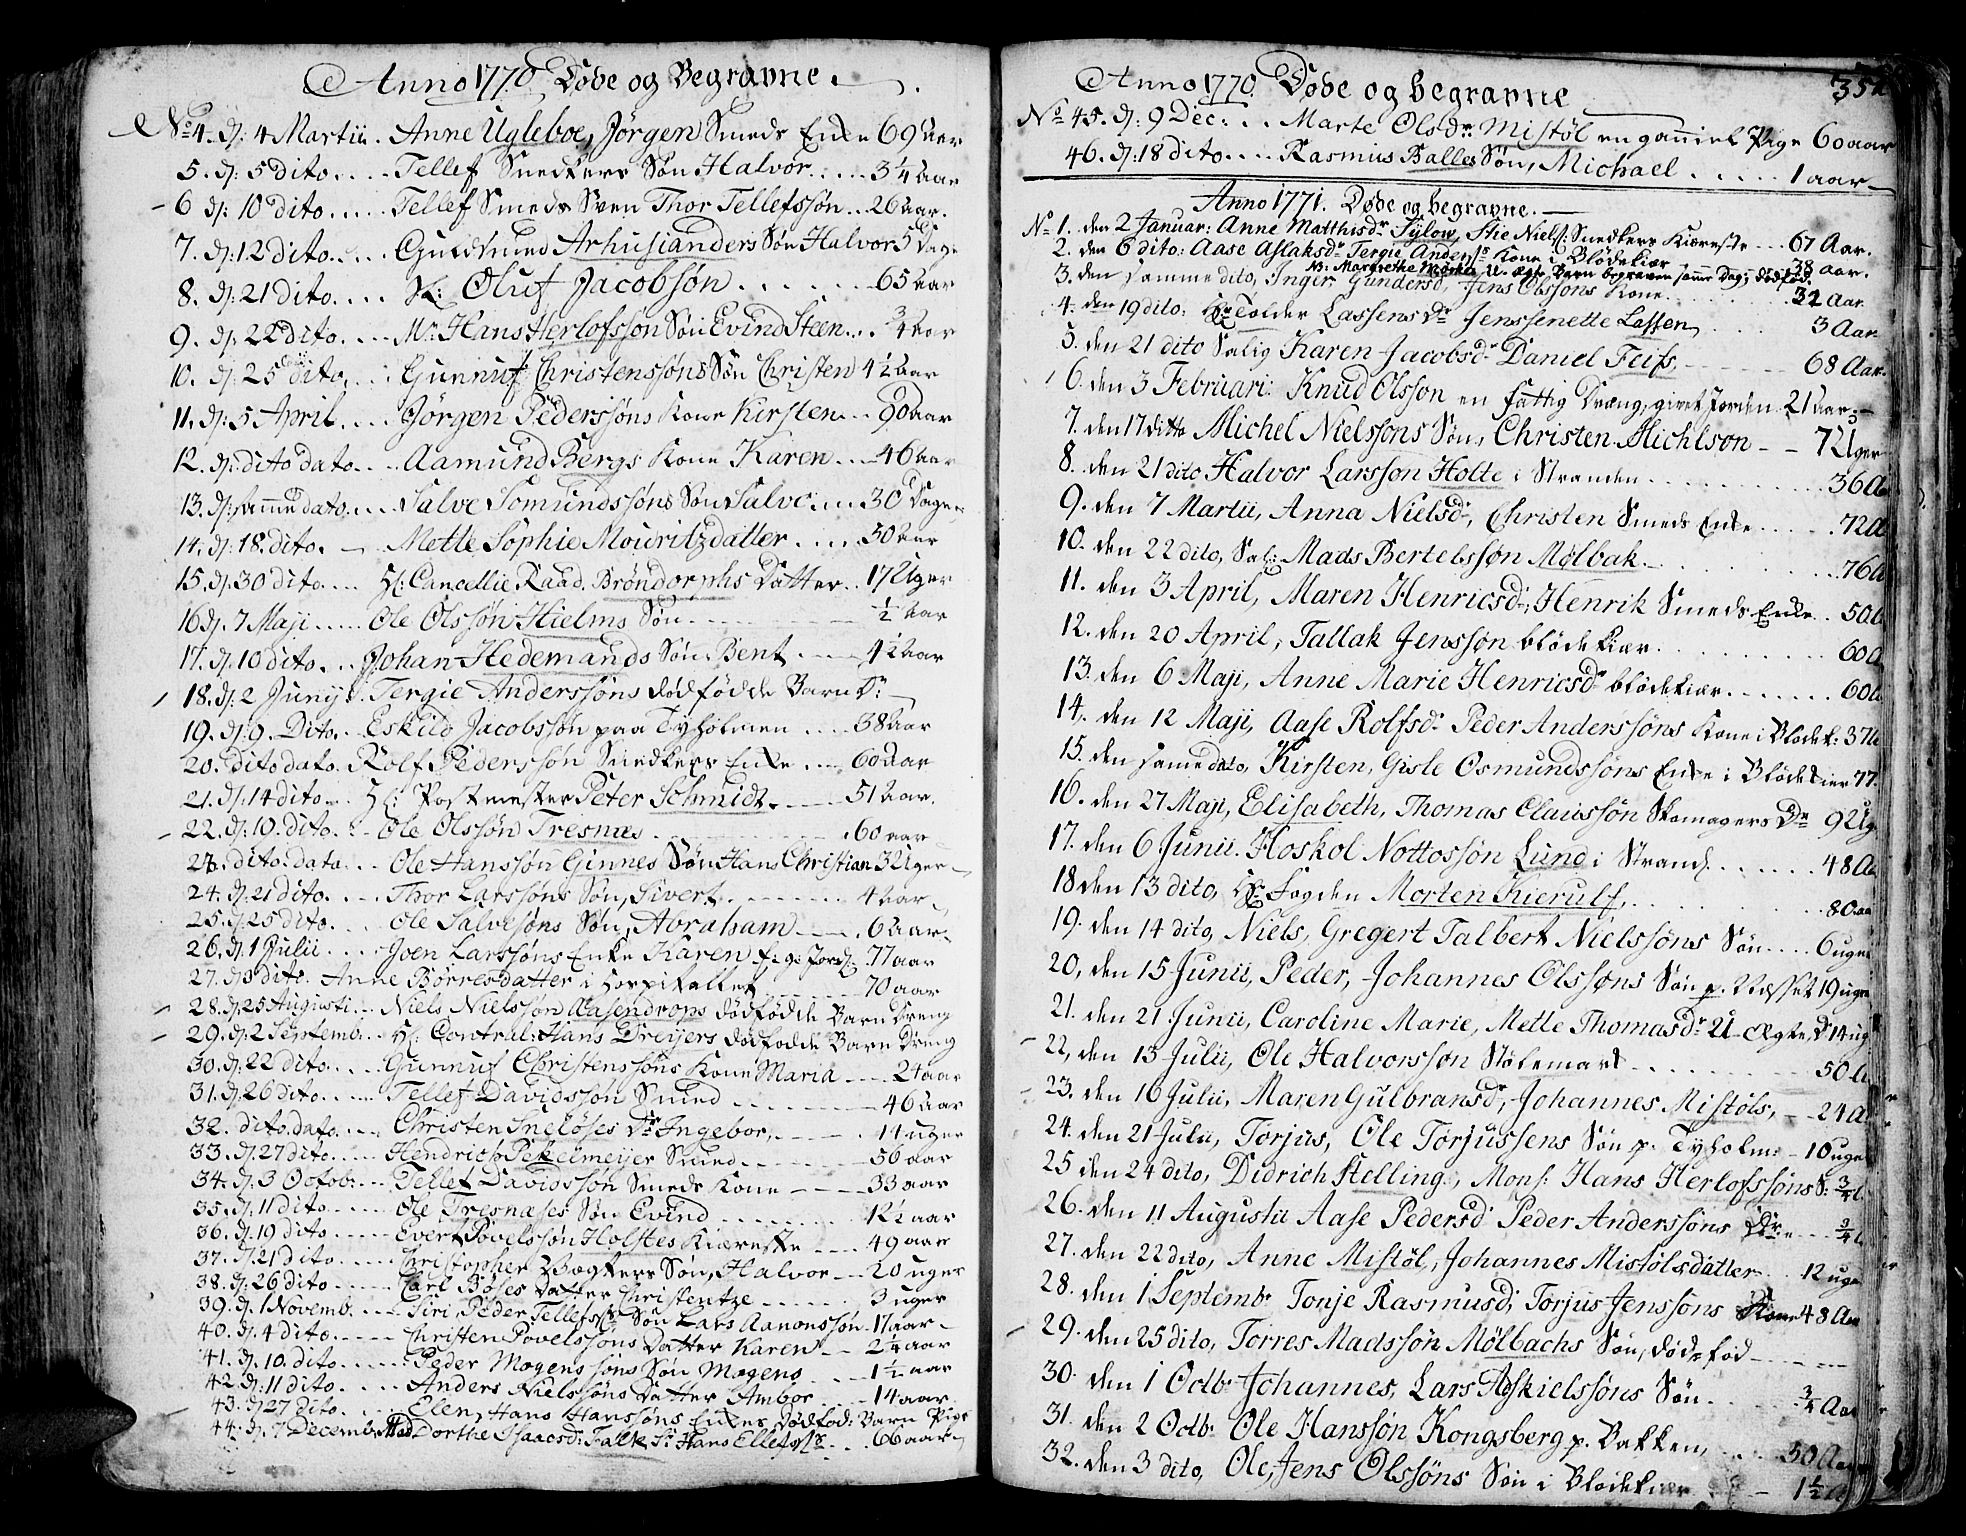 Anno 1770. Døde og Begravne.
No 4. d: 4 Martii. Anne Ugleboe, Jørgen Smeds Enke 69 Aar
5. d: 5 dito..... Tellef Snedkers Søn Halvor..... 3 1/4 aar
6 d: 10 dito..... Tellef Smeds Sven Thor Tellefssøn.. 26 Aar.
7. d: 12 dito.... Guldsmed Arhusianders Søn Halvor 5 Dage
8. d: 21 dito.... Sl: Oluf Jacobsøn....... 65 aar
9. d: 22 dito.... Mr. Hans Herlofssøn Søn Evind Steen... 3/4 aar
10. d: 25 dito.... Gunnuf Christenssøns Søn Christen 4 1/2 aar
11. d: 5 April.... Jørgen Pederssøns Kone Kirsten... 90 aar
12. d: dito dato.... Aamund Bergs Kone Karen... 46 aar
13. d: samme dato.... Salve Somundssøns Søn Salve.... 30 Dage
14. d: 18. dito. Mette Sophie Mouritzdatter..... 30 aar
15. d: 30 dito.... H: Cancellie Raad Brøndorphs Datter.. 17 Uger
16 d. 7 Maji..... Ole Olssøn Hielms Søn...... 1/2 aar
17. d. 10 dito... Johan Hedemands Søn Bent..... 4 1/2 aar
18. d: 2 Junij. Tergie Anderssøns dødfødde Barn Dr:
19. d: 9. Dito.. Eskild Jacobssøn paa Tyholmen..... 38 Aar
20. dito dato. Rolf Pederssøn Snedkers Enke.... 60 Aar
21. d: 14 dito... H: Postmester Peter Schmidt..... 51 aar.
22. d: 10. dito... Ole Olssøn Tresnæs....... 60 aar
23. dito dato... Ole Hanssøn Ginnes Søn Hans Christian 3 Uger
24. d: 21 dito.... Thor Larssøns Søn, Sivert....... 4 aar
25. d: 25 dito.... Ole Salvesøns Søn, Abraham... 6 aar
26. d. 1 Julii.... Joen Larssøns Enke Karen f. g. jord: 77 aar
27. d: 8 dito. Anne Børresdatter i Hospitallet....... 70 aar
28. d: 25 Augusti... Niels Nielssøn Aasendrops dødfødde Barn Dreng
29. d: 2 Septemb... H: Control: Hans Dreyers dødfødde Barn Dreng
30. d: 22 dito.... Gunnuf Christenssøns Kone Maria.... 24 aar
31. d: 26 dito..... Tellef Davidssøn Smed....... 46 aar
32. dito dato.... Christen Sneløses Dr Ingebor....... 14 uger
33. d. 27 dito..... Hendrich Pekelmeijer Smed....... 56 aar
34. d. 3 Octob:... Tellef Davidssøn Smeds Kone..... 33 aar
35. d. 11 dito..... Ole Tresnæses Søn Evind....... 1 1/2 aar
36. d. 19 dito..... Evert Povelssøn Holstes Kiereste.... 49 aar
37. d. 21 dito..... Christopher Bægkers Søn, Halvor... 20 uger
38. d: 26 dito..... Carl Bøses Datter Christentze..... 3 uger
39. d. 1 Novemb.... Siri Peder Tellefss: Søn Lars Aanonssøn. 17 aar
40. d. 4 dito..... Christen Povelssøns Datter Karen.. 2 1/4 aar
41. d. 10. dito...... Peder Mogenssøns Søn Mogens.... 1 1/2 aar
42. d: 11 dito..... Anders Nielssøns Datter Ambor.... 14 aar.
43. d 27 dito..... Elen, Hans Hanssøns Enkes dødfød: Barn Pige
44. d. 7 Decemb. Mad Dorthe Isaacsd: Falk Sr Hans Ellefss.... 66 aar
352
Anno 1770. Døde og begravne
No 45. d: 9 Dec:... Marte Olsdr Mistøl en gammel Pige 60 aar
46. d: 18 dito.... Rasmus Balles Søn, Michael...... 1 aar
Anno 1771. Døde og begravne.
No 1. den 2 Januar: Anne Matthisdr Sylow, Stie Niels: Snedkers Kiereste... 67 Aar.
2. den 6 dito: Aase Aslaksdr Tergie Anders: Kone i Blødekiær....... 38 aar.
NB: Margrethe U. ægte Barn begraven samme Dag; dødfød.
3. den samme dito, Inger Gundersd, Jens Olssøns Kone....... 32 Aar
4. den 19 dito: Hr Tolder Lassens Dr Jenssenette Lassen,..... 3 Aar
5. den 21 dito Salig Karen Jacobsd Daniel Feiss,....... 68 Aar.
6. den 3 Februari: Knud Olssøn en fattig Dræng, givet Jorden. 21 aar
7. den 17 ditto Michel Nielssøns Søn, Christen Michlson - - 7 Uger
8. den 21 dito Halvor Larssøn Holte i Stranden........ 36 A
9. den 7 Martii, Anna Nielsd, Christen Smeds Enke..... 72 A
10. den 22 dito, Sal: Mads Bertelssøn Mølbak........ 76 A
11. den 3 April, Maren Henricsd, Henrik Smeds Enke.. 50 A
12. den 20 April, Tallak Jenssøn blødekiær......... 60 A
13. den 6 Maji, Anne Marie Henricsdr blødekiær....... 60 A
14. den 12 Maji, Aase Rolfsdr Peder Anderssøns Kone i Blødek: 37 A
15. den samme dato, Kirsten, Gisle Osmundssøns Enke i Blødekier 77.
16. den 27 Maji, Elisabeth, Thomas Claussøn Skomagers Dr 9 Ug
17. den 6 Junii. Hoskol Nottossøn Lund i Strand........ 48 A
18 den 13 dito, Hr Fogden Morten Kierulf,......... 80. aa
19. den 14 dito, Niels, Gregert Talbert Nielssøns Søn.... 6 uger
20, den 15 Junii, Peder, Johannes Olssøns Søn p. Næsset 19 uger
21. den 21 Junii, Caroline Marie, Mette Thomasdr U-ægte, D 14 ug:
22, den 13 Julii, Ole Halvorssøn Stølemark......... 50 A
23. den 16 Julii, Maren Gulbransdr, Johannes Mistøls, - - 24 A
24. den 21 Julii, Torjus, Ole Torjussens Søn p. Tyholm: - 16 uge
25 den 24 dito, Didrich Stelling, Mons: Hans Herlofssøns S: 3/4 A
26. den 11 Augusti Aase Pedersd Peder Anderssøns Dr... 3/4 A
27. den 22 dito, Anne Mistøl, Johannes Mistølsdatter... 12 uge
28. den 1 Septemb: Tonje Rasmusd, Torjus Jenssøns Kone 48 Aa
29. den 25 dito, Torres Madssøn Mølbachs Søn, dødfød
30. den 1 Octb: Johannes, Lars Askielssøns Søn....... 3/4 Aa
31. den 2 Octb: Ole Hanssøn Kongsberg p. Bakken,..... 50 Aa
32. den 3 dito, Ole, Jens Olssøns Søn i Blødekiær..... 1 1/2 A